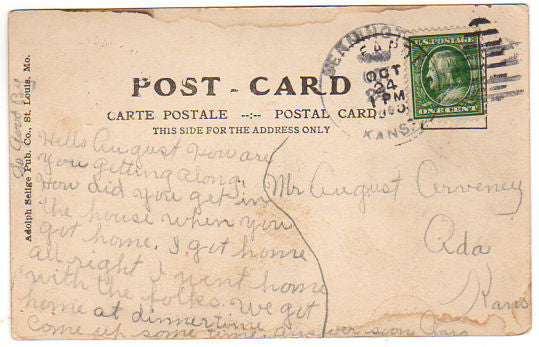 POST - CARD
CARTE POSTALE --:-- POSTAL CARD
THIS SIDE FOR THE ADDRESS ONLY
Adolph Selige Pub. Co., St. Louis, Mo.
OCT
24
1 PM
KANS
U.S. POSTAGE
ONE CENT
Hello August How are
you getting along.
How did you get in
the house when you
got home. I got home
all right I went home
with the folks. We got
home at dinnertime
come up some time. answer soon
Mr August Cerveney
Ada
Kans